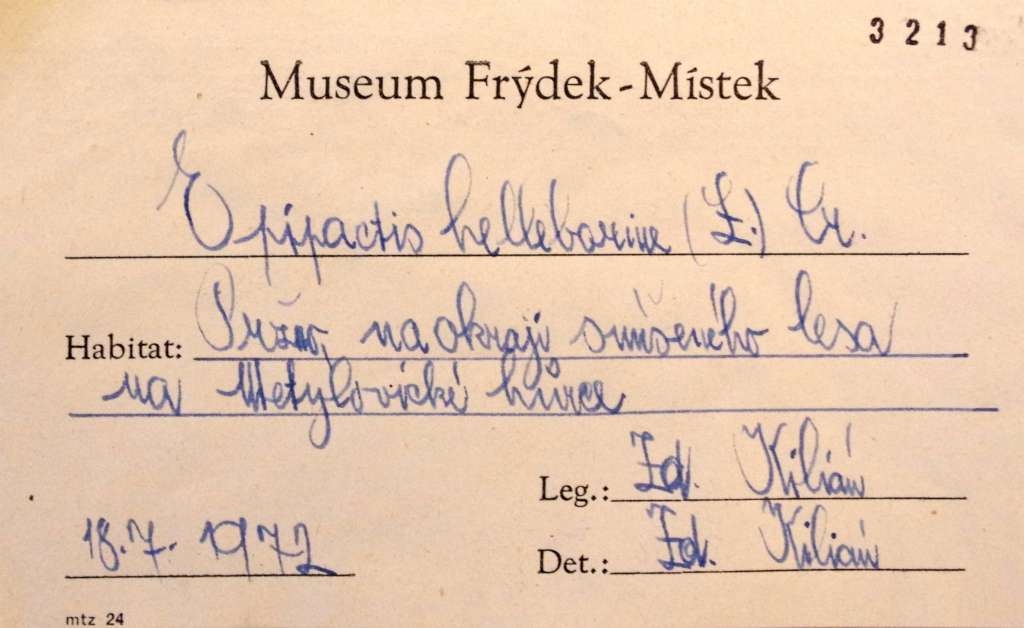 3213
Museum Frýdek-Místek
Epipactis helleborine (L.) Cr.
Habitat: Pržno, na okraji smíšeného lesa
na Metylovické hůrce
Leg.: Zd. Kilián
18.7. 1972
Det.: Zd. Kilián
mtz 24